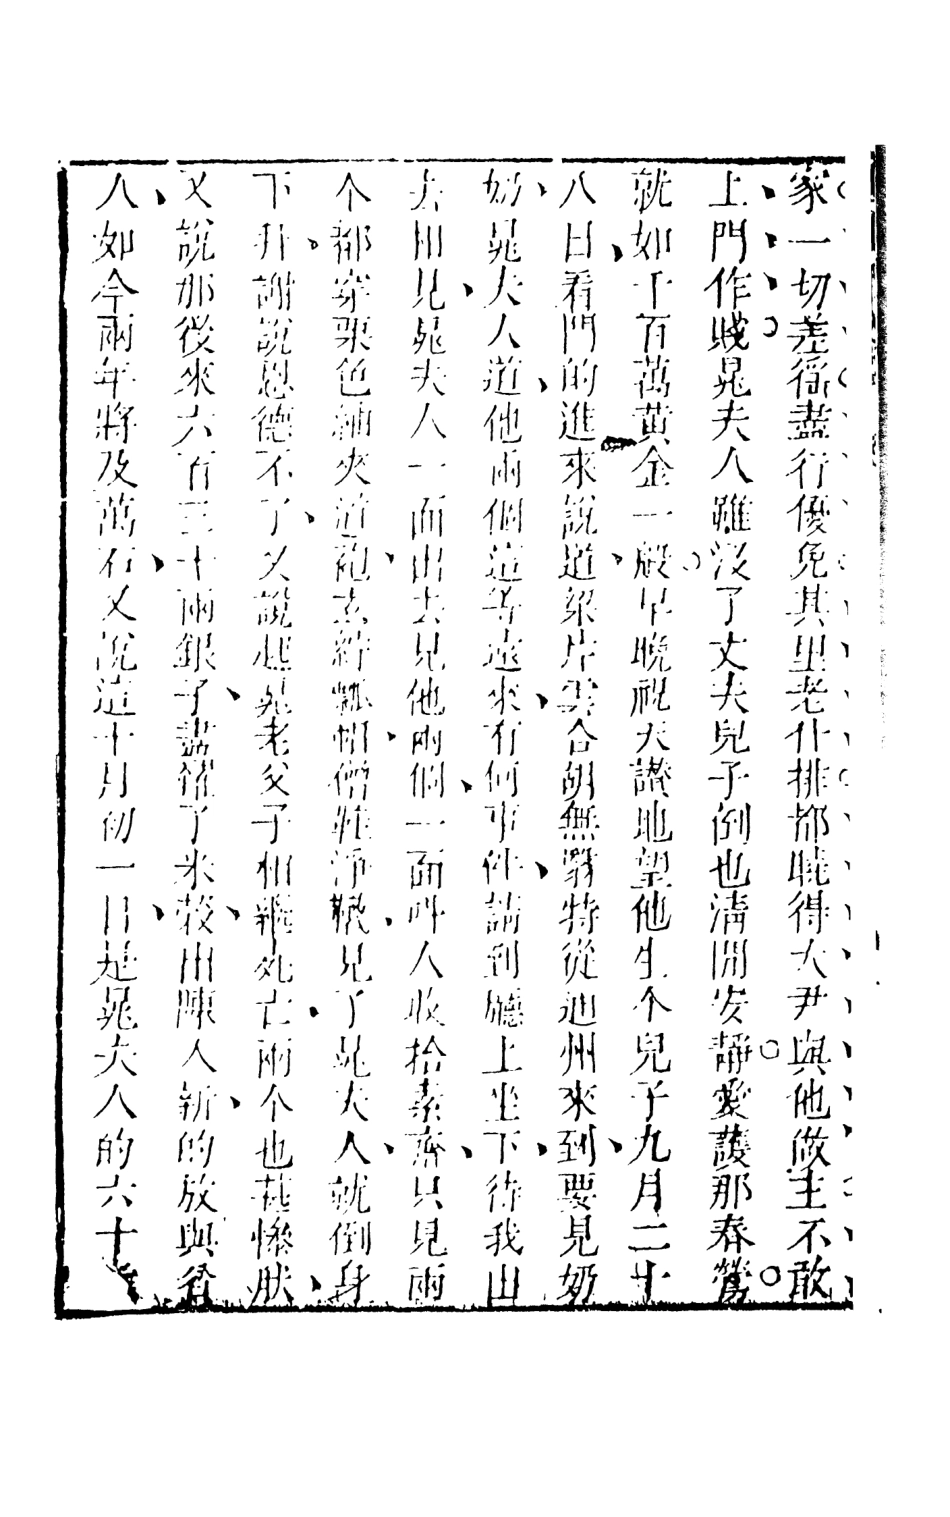 家一切差徭盡行優免其里老什排都曉得大尹與他做主不敢
上門作賤晁夫人雖沒了丈夫兒子倒也淸閒安靜愛護那春鶯
就如千百萬黃金一般早晚祝天讚地望他生个兒子九月二十
八日看門的進來說道梁片雲合胡無翳特從通州來到要見奶
奶晁夫人道他兩個這等遠來有何事件請到廳上坐下待我出
去相見晁夫人一面出去見他兩個一面呌人收拾素齋只見兩
个都穿栗色紬夾道袍玄紵瓢帽僧鞋淨韈見了晁夫人就倒身
下拜謝說恩德不了又說起晁老父子相繼死亡兩个也甚慘肰
又說那後來六百三十兩銀子盡糴了米穀出陳入新的放與貧
人如今兩年將及萬石又說這十月初一日是晁夫人的六十